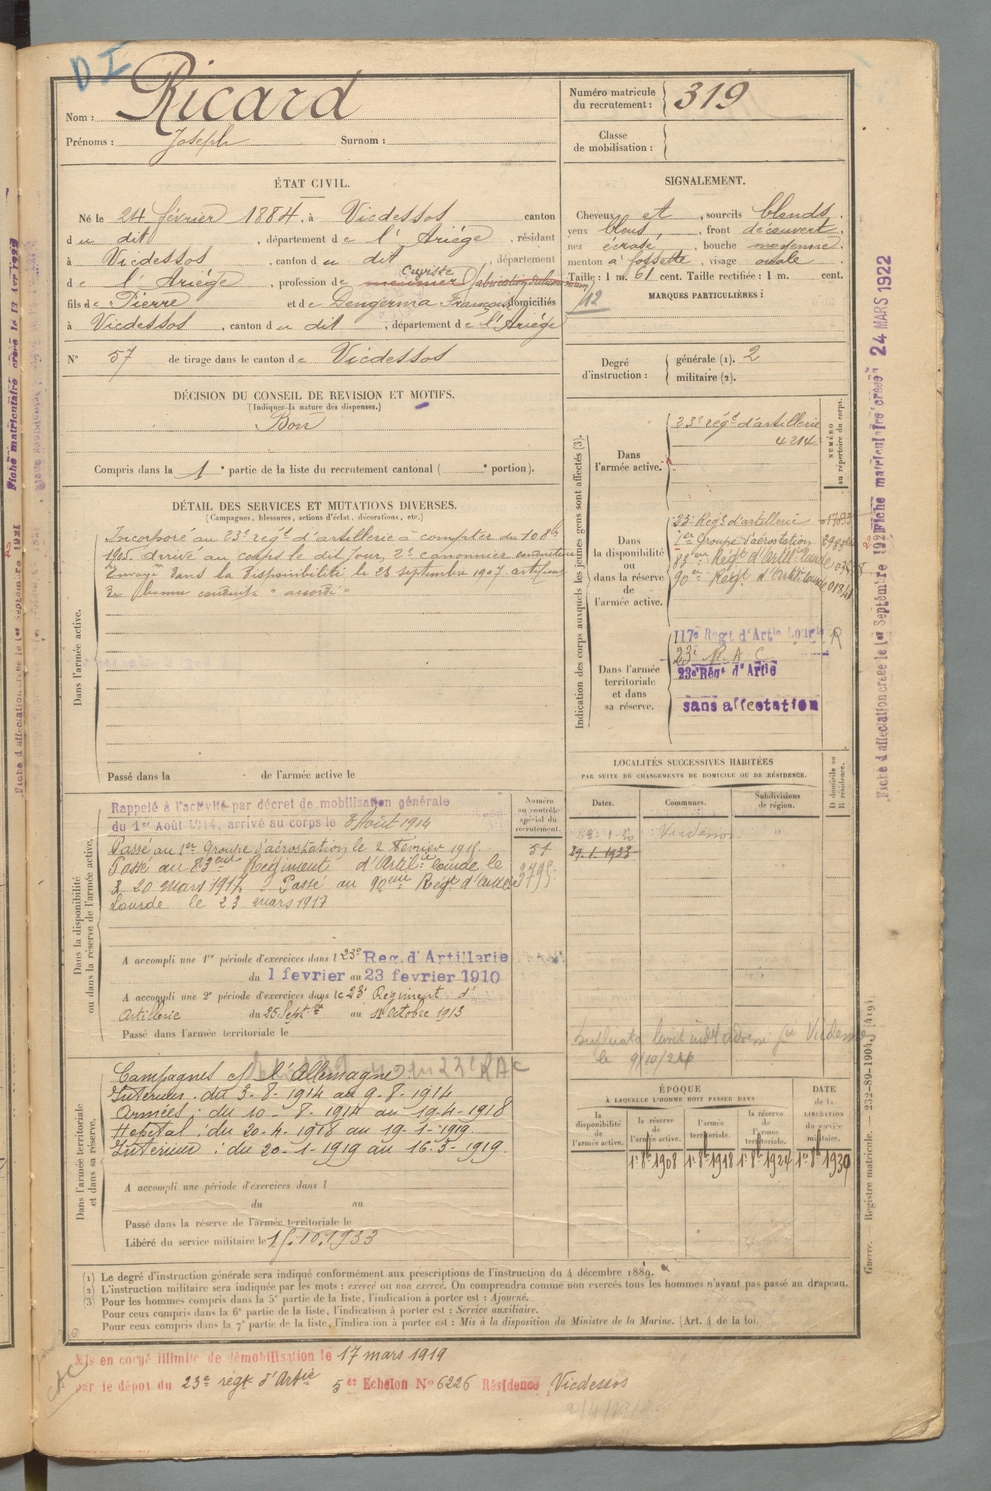 D I
Nom : Ricard
Prénoms : Joseph Surnom :
Numéro matricule du recrutement : 319
Classe de mobilisation :
ÉTAT CIVIL.
Né le 24 février 1884, à Vicdessos canton
du dit, département de l'Ariège, résidant
à Vicdessos, canton du dit, département
de l'Ariège, profession de
fils de Pierre et de Françoise domiciliés
à Vicdessos, canton du dit, département de l'Ariège
N° 57 de tirage dans le canton de Vicdessos
SIGNALEMENT.
Cheveux et, sourcils blonds.
yeux bleus, front découvert,
nez écrasé, bouche moyenne,
menton à fossette, visage ovale.
Taille : 1 m. 61 cent. Taille rectifiée : 1 m. cent.
MARQUES PARTICULIÈRES :
Degré d'instruction : générale (1). 2
militaire (2).
DÉCISION DU CONSEIL DE REVISION ET MOTIFS.
(Indiquer la nature des dispenses.)
Bon
Compris dans la 1e partie de la liste du recrutement cantonal ( e portion).
DÉTAIL DES SERVICES ET MUTATIONS DIVERSES.
(Campagnes, blessures, actions d'éclat, décorations, etc.)
Dans l'armée active.
Incorporé au 23e régt d'artillerie à compter du 10 8bre
1905. arrivé au corps le dit jour, 2e canonnier conducteur
Envoyé dans la disponibilité le 23 septembre 1907. certificat
de bonne conduite "accordé"
Passé dans la de l'armée active le
Indication des corps auxquels les jeunes gens sont affectés (3).
NUMÉRO au répertoire du corps.
Dans l'armée active.
23e régt d'artillerie
4214
Dans la disponibilité ou dans la réserve de l'armée active.
23e Régt d'artillerie
1er Groupe d'aérostation
83ème Régt d'Artie Lourde
90ème Régt d'Artie Lourde
Dans l'armée territoriale et dans sa réserve.
117e Régt d'Artie Lourde R
23e R A C
23e Régt d'Artie
sans affectation
LOCALITÉS SUCCESSIVES HABITÉES
PAR SUITE DE CHANGEMENTS DE DOMICILE OU DE RÉSIDENCE.
Dates. Communes. Subdivisions de région. D domicile ou R résidence.
29.1.1933
Dans la disponibilité ou dans la réserve de l'armée active.
Numéro au contrôle spécial du recrutement.
Rappelé à l'activité par décret de mobilisation générale
du 1er Août 1914, arrivé au corps le 3 Août 1914
Passé au 1er Groupe d'aérostation le 2 Février 1915.
Passé au 83ème Régiment d'Artil:ie lourde le
20 mars 1917. Passé au 90ème Régt d'Artillerie
Lourde le 23 mars 1917
A accompli une 1re période d'exercices dans l 23e Reg. d'Artillerie
du 1 fevrier au 23 fevrier 1910
A accompli une 2e période d'exercices dans le 23e Régiment d'
Artillerie du 25 Septbre au 11 Octobre 1913
Passé dans l'armée territoriale le
le 9/10/24
Dans l'armée territoriale et dans sa réserve.
Campagnes c/ l'Allemagne
Intérieur : du 3-8-1914 au 9-8-1914
Armées : du 10-8-1914 au 19-4-1918
Hopital : du 20-4-1918 au 19-1-1919.
Intérieur : du 20-1-1919 au 16-3-1919.
A accompli une période d'exercices dans l
du au
Passé dans la réserve de l'armée territoriale le
Libéré du service militaire le 15.10.1933
ÉPOQUE
À LAQUELLE L'HOMME DOIT PASSER DANS
DATE de la LIBÉRATION du service militaire.
la disponibilité de l'armée active.
la réserve de l'armée active.
l'armée territoriale.
la réserve de l'armée territoriale.
1er 8bre 1908 1er 8bre 1918 1er 8bre 1924 1er 8bre 1930
(1) Le degré d'instruction générale sera indiqué conformément aux prescriptions de l'instruction du 4 décembre 1889.
(2) L'instruction militaire sera indiquée par les mots : exercé ou non exercé. On comprendra comme non exercés tous les hommes n'ayant pas passé au drapeau.
(3) Pour les hommes compris dans la 5e partie de la liste, l'indication à porter est : Ajourné.
Pour ceux compris dans la 6e partie de la liste, l'indication à porter est : Service auxiliaire.
Pour ceux compris dans la 7e partie de la liste, l'indication à porter est : Mis à la disposition du Ministre de la Marine. (Art. 4 de la loi.)
Mis en congé illimité de démobilisation le 17 mars 1919
par le dépôt du 23e régt d'Artie 5e Echelon N° 6226 Résidence Vicdessos
Guerre. — Registre matricule. — 232-89-1904. [419].
Fiche d'affectation créée le 1er Septembre 1921
Fiche matriculaire créée 24 MARS 1922